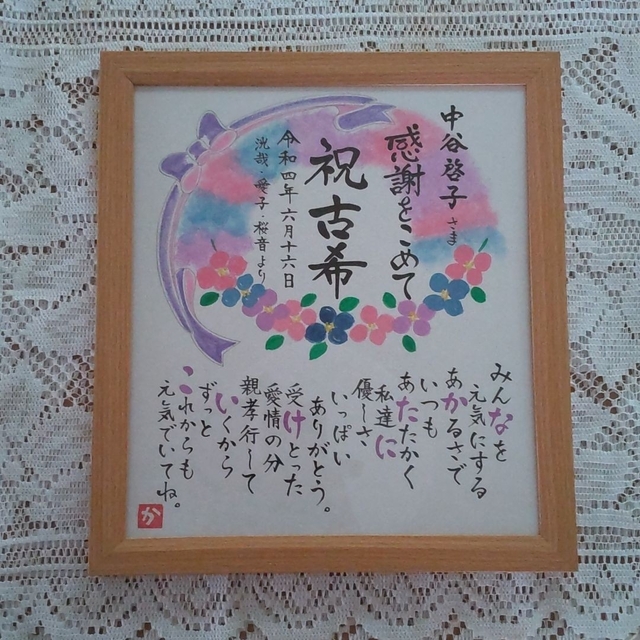 中谷啓子さま
感謝をこめて
祝古希
令和四年六月十六日
洸哉・愛子・桜音より
みんなを
元気にする
あかるさで
いつも
あたたかく
私達に
優しさ
いっぱい
ありがとう。
受けとった
愛情の分
親孝行して
いくから
ずっと
これからも
元気でいてね。
か